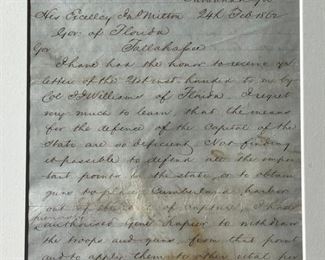 Savannah Ga
His Excellcy Jno Milton 24h Feb 1862
Gov. of Florida
Gov Tallahassee
I have had the honor to receive yr
letter of the inst. handed to me by
Col J J Williams of Florida. I regret
very much to learn that the means
for the defence of the Capital of the
State are so deficient, Not finding
it possible to defend all the impor
tant points in the state, or to obtain
guns to place Cumberland harbor
out of the of capture, I had
authorised Genl Trapier to withdraw
the troops and guns from that point
and to apply them to other